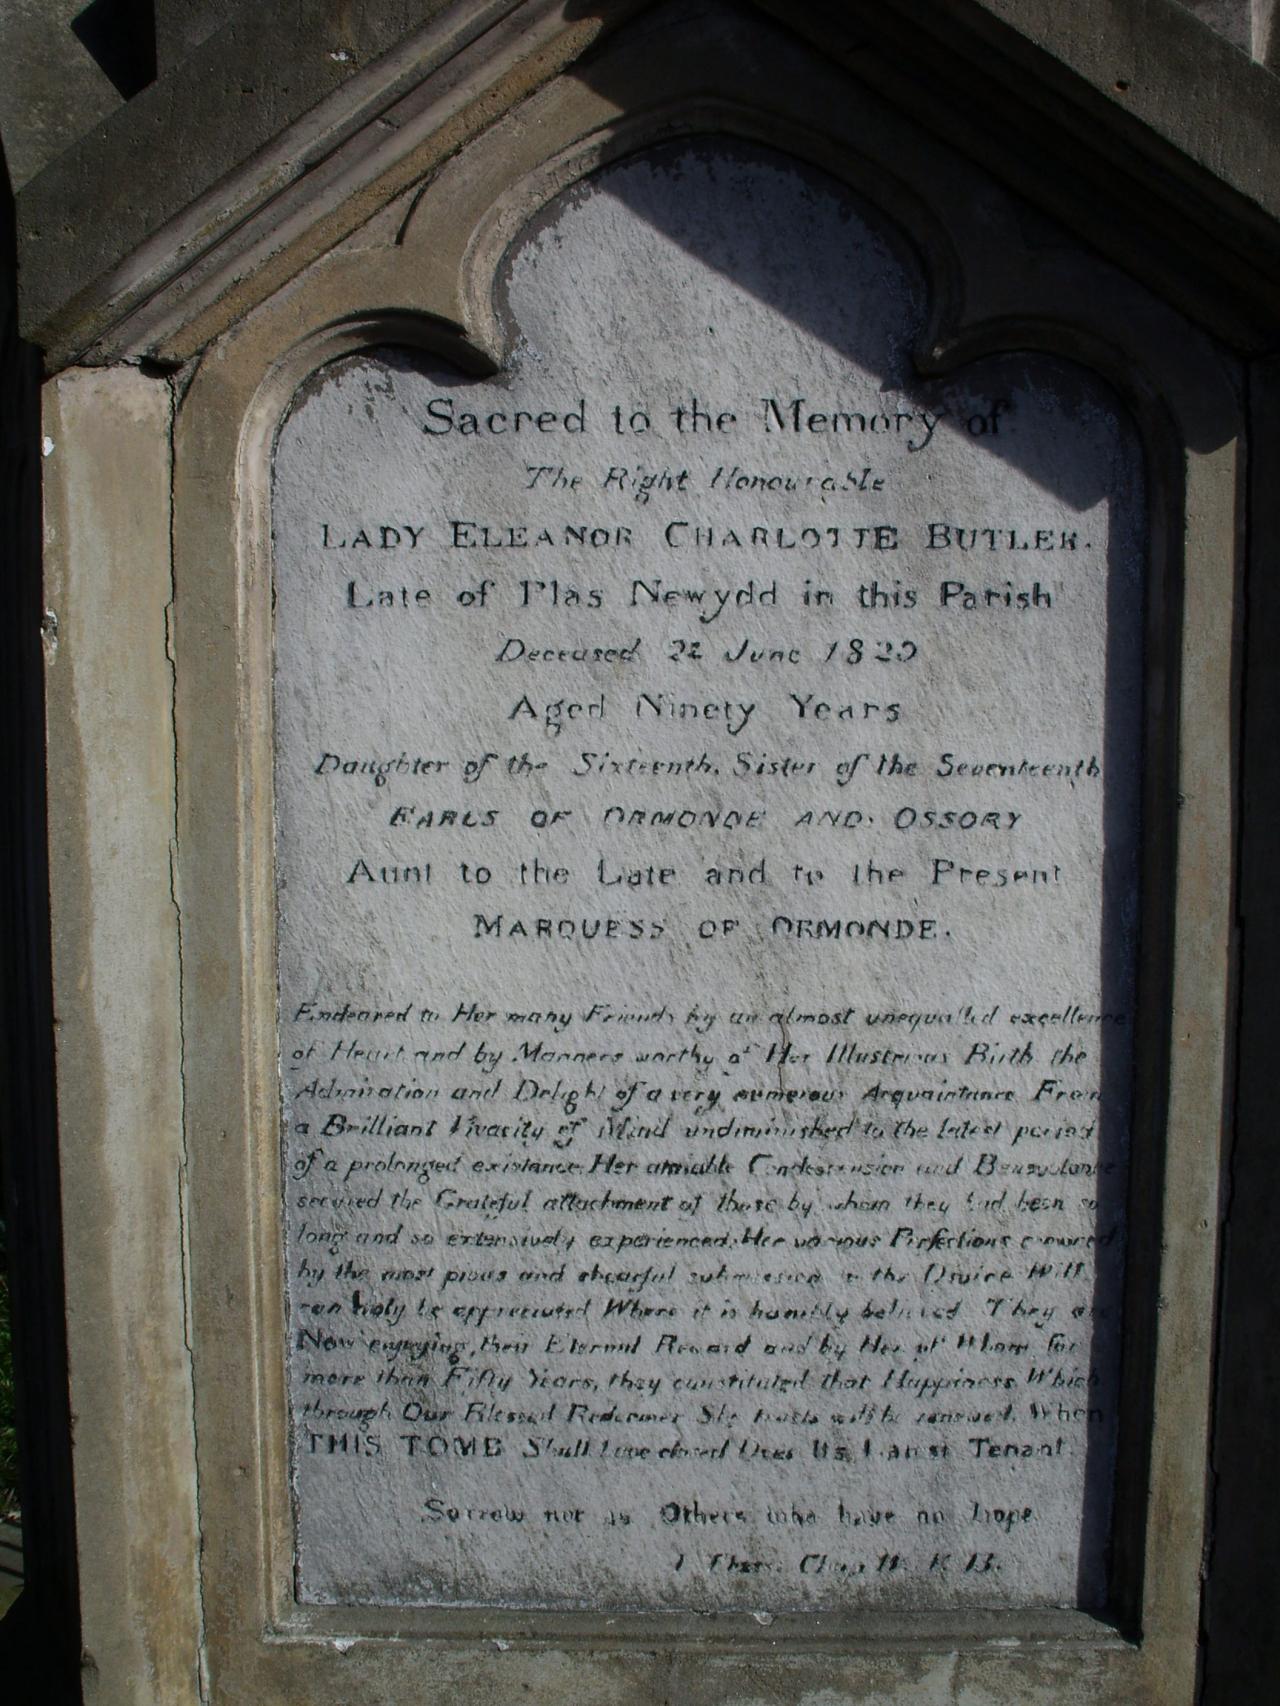 Sacred to the Memory of
The Right Honourable
LADY ELEANOR CHARLOTTE BUTLER.
Late of Plas Newydd in this Parish
Deceased 2d June 1829
Aged Ninety Years
Daughter of the Sixteenth, Sister of the Seventeenth
EARLS OF ORMONDE AND OSSORY
Aunt to the Late and to the Present
MARQUESS OF ORMONDE.
Endeared to Her many Friends by an almost unequalled excellence
of Heart and by Manners worthy of Her Illustrious Birth the
Admiration and Delight of a very numerous Acquaintance From
a Brilliant Vivacity of Mind undiminished to the latest period
of a prolonged existance. Her amiable Condescension and Benevolence
secured the Grateful attachment of those by whom they had been so
long and so extensively experienced, Her various Perfections crowned
by the most pious and chearful submission to the Divine Will
can only be appreciated Where it is humbly believed They are
Now enjoying their Eternal Reward and by Her of Whom for
more than Fifty Years, they constituted that Happiness Which
through Our Blessed Redeemer She trusts will be renewed. When
THIS TOMB Shall have closed Over Its Latest Tenant.
Sorrow not as Others who have no hope
1 Thess. Chap